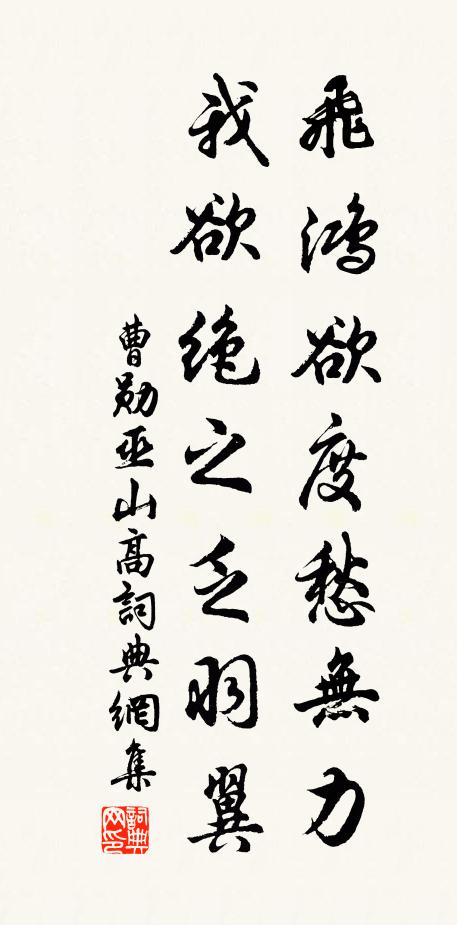 飛鴻欲度愁無力
我欲絶之乏羽翼
曹勛巫山高詞典網集
詞典網印